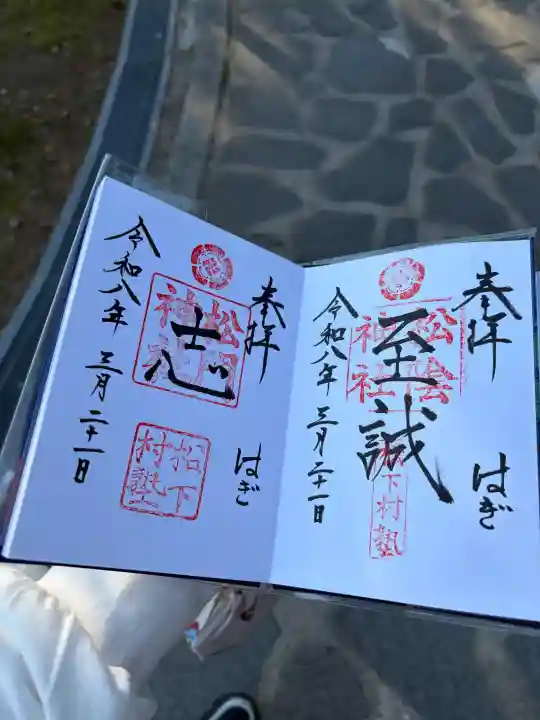 奉拝
はぎ
至誠
松陰
神社
松下村塾
令和八年三月二十一日
奉拝
はぎ
志
神社
松下
村塾
令和八年三月二十一日